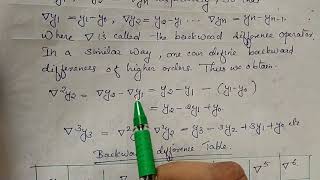 ∇y1 = y1-y0, ∇y2 = y2-y1 .... ∇yn = yn-yn-1.
Where ∇ is called the backward difference operator.
In a similar way, one can define backward
differences of higher orders. Thus we obtain.
∇²y2 = ∇y2 - ∇y1 = y2-y1 - (y1-y0)
= y2-2y1+y0.
∇³y3 = ∇² ∇²y2 = y3-3y2+3y1+y0 etc
Backward difference Table.
∇⁵ ∇⁶